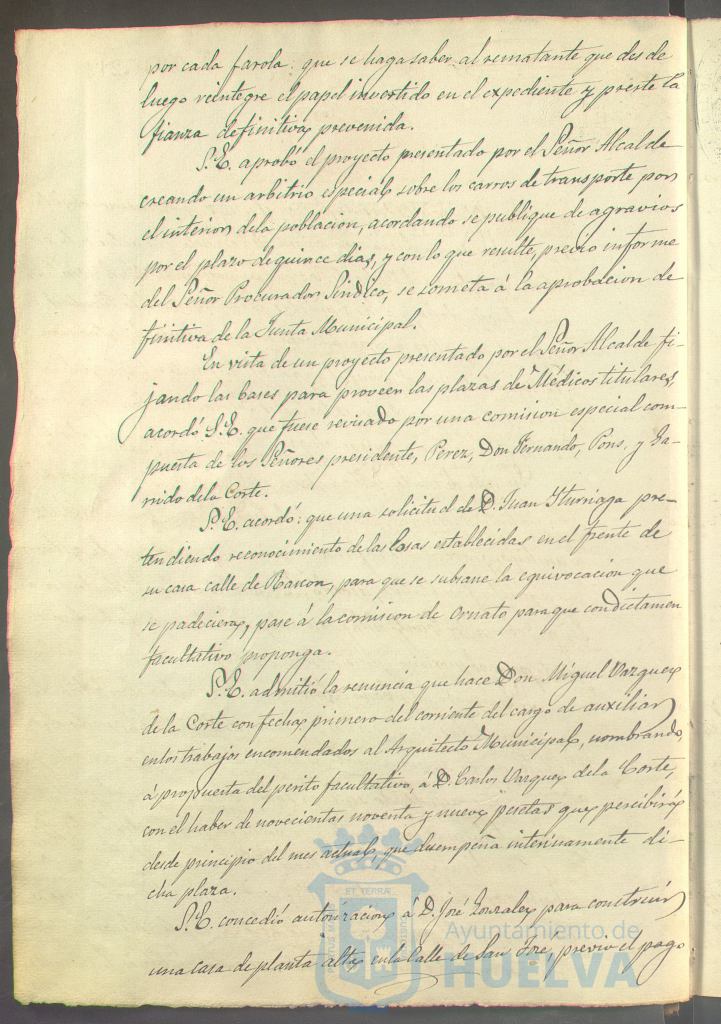 por cada farola: que se haga saber al rematante que desde
luego reintegre el papel invertido en el expediente y preste la
fianza definitiva prevenida.
S. E. aprobó el proyecto presentado por el Señor Alcalde
creando un arbitrio especial sobre los carros de transporte por
el interior de la poblacion, acordando se publique de agravios
por el plazo de quince dias, y con lo que resulte, previo informe
del Señor Procurador Sindico, se someta á la aprobacion de
finitiva de la Junta Municipal.
En vista de un proyecto presentado por el Señor Alcalde fi-
jando las bases para proveer las plazas de Médicos titulares,
acordó S. E. que fuese revisado por una comision especial com-
puesta de los Señores presidente, Perez, Don Fernando, Pons, y Ga-
rrido de la Corte.
S. E. acordó: que una solicitud de D. Juan Yturriaga pre-
tendiendo reconocimiento de las losas establecidas en el frente de
su casa calle de Rascon, para que se subsane la equivocacion que
se padeciera, pase á la comision de Ornato para que con dictamen
facultativo proponga.
S. E. admitió la renuncia que hace Don Miguel Vazquez
de la Corte con fecha primero del corriente del cargo de auxiliar
en los trabajos encomendados al Arquitecto Municipal, nombrando,
á propuesta del perito facultativo, á D. Carlos Vazquez de la Corte,
con el haber de novecientas noventa y nueve pesetas que percibirá
desde principio del mes actual, que desempeña interinamente di-
cha plaza.
S. E. concedió autorizacion á D. José Gonzalez para construir
una casa de planta alta en la Calle de San José, previo el pago
ET TERRAE
Ayuntamiento de
HUELVA